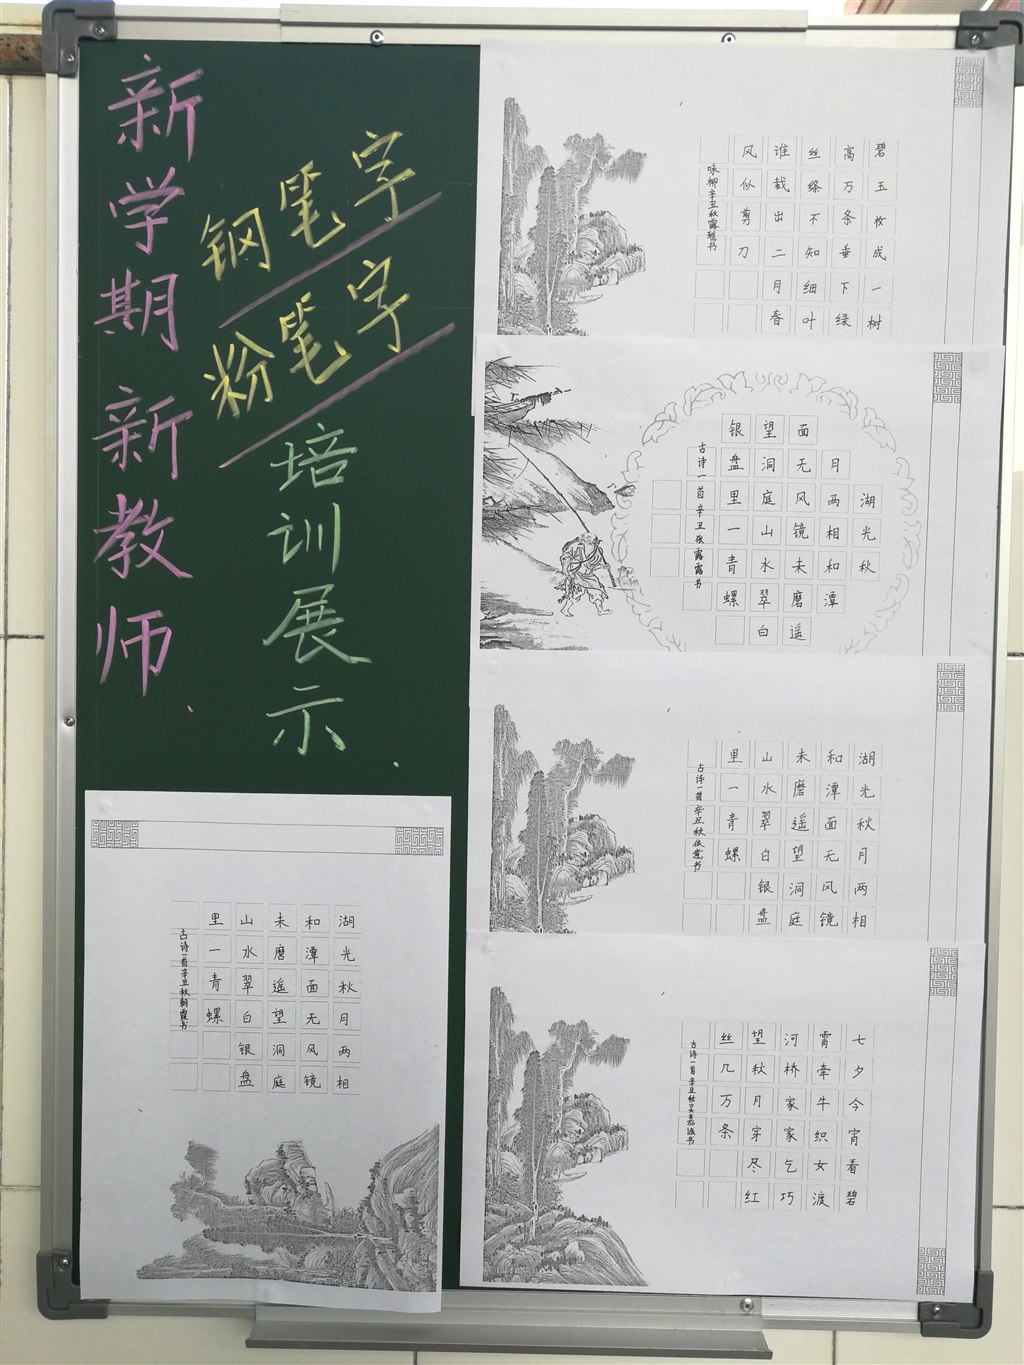 新学期 新教师
钢笔字
粉笔字
培训展示
碧玉枚成一树
高万条垂下绿
丝绦不知细叶
谁裁出二月春
风似剪刀
咏柳辛丑秋露瑶书
湖光秋
月两相和潭
面无风镜未磨遥
望洞庭山水翠白
银盘里一青螺
古诗一首辛丑张露露书
湖光秋月两相
和潭面无风镜
未磨遥望洞庭
山水翠白银盘
里一青螺
古诗一首辛丑秋书
七夕今宵看碧
霄牵牛织女渡
河桥家家乞巧
望秋月穿尽红
丝几万条
古诗一首辛丑秋书
湖光秋月两相
和潭面无风镜
未磨遥望洞庭
山水翠白银盘
里一青螺
古诗一首辛丑秋朝霞书